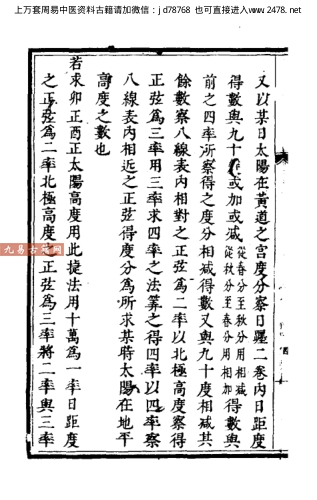 上万套周易中医资料古籍请加微信：jd78768 也可直接进入www.2478.net
又以某日太陽在黃道之宮度分察日躔二卷內日距度
得數與九十度或加或減從春分至秋分用相減從秋分至春分用相加得數與
前之四率所察得之度分相減得數又與九十度相減其
餘數察八線表內相對之正弦爲二率以北極高度察得
正弦爲三率用三率求四率之法算之得四率以四率察
八線表內相近之正弦得度分爲所求某時太陽在地平
高度之數也
若求卯正酉正太陽高度用此捷法用十萬爲一率日距度
之正弦爲二率北極高度正弦爲三率將二率與三率
九易古